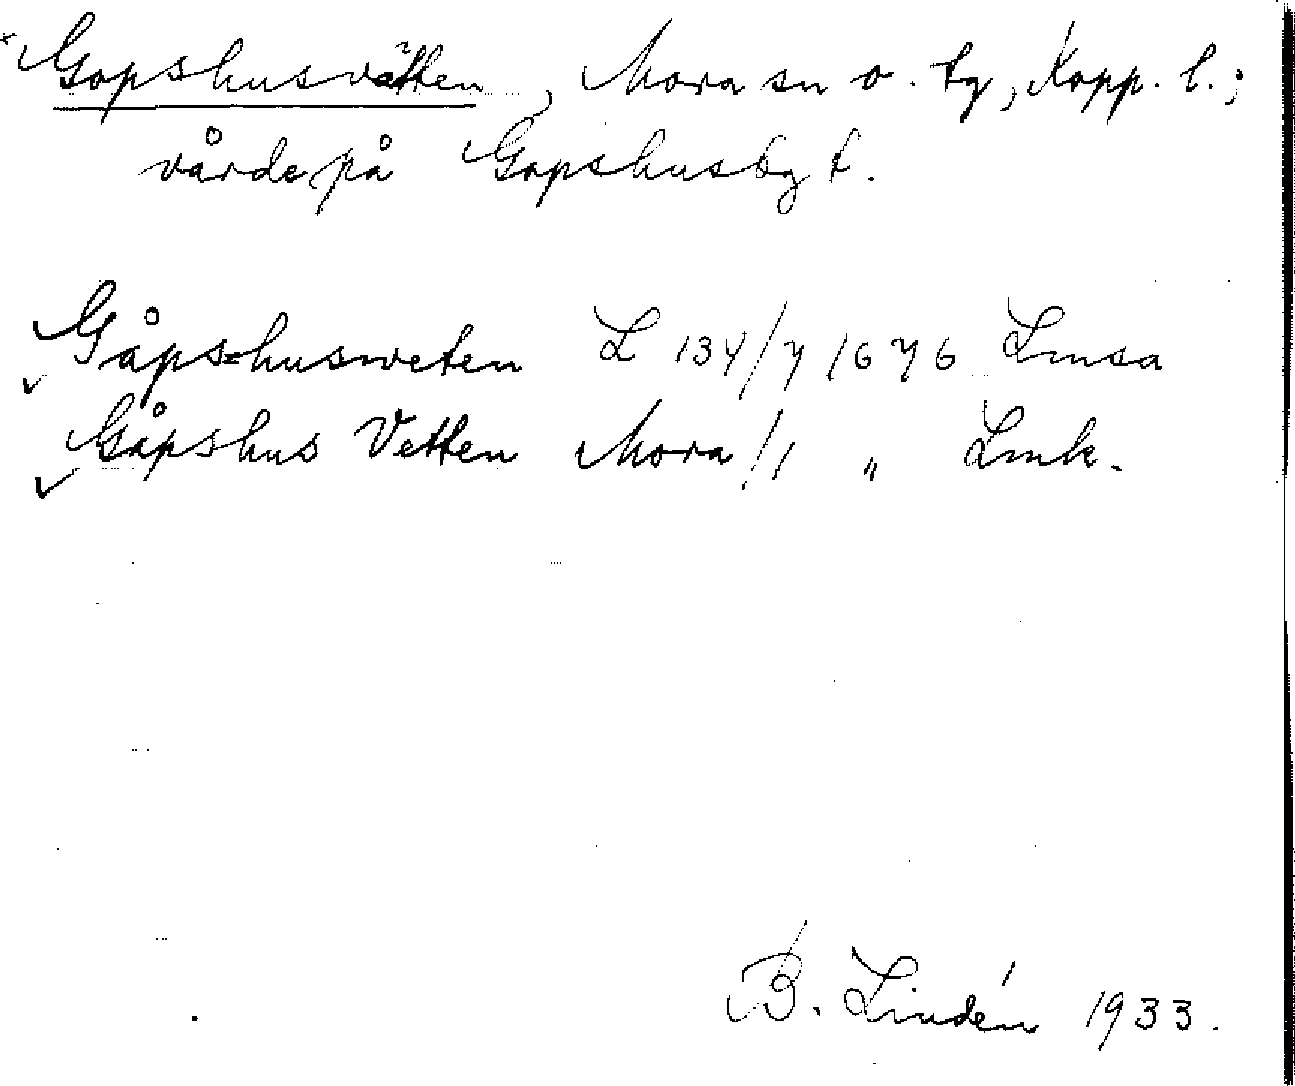 *Gopshusvätten, Mora sn o. tg, Kopp. l.;
vårde på Gopshusbgt.
Gåps=husweten L 134/7 1676 Lmsa
Gåpshus Vetten Mora/1 " Lmk.
B. Lindén 1933.